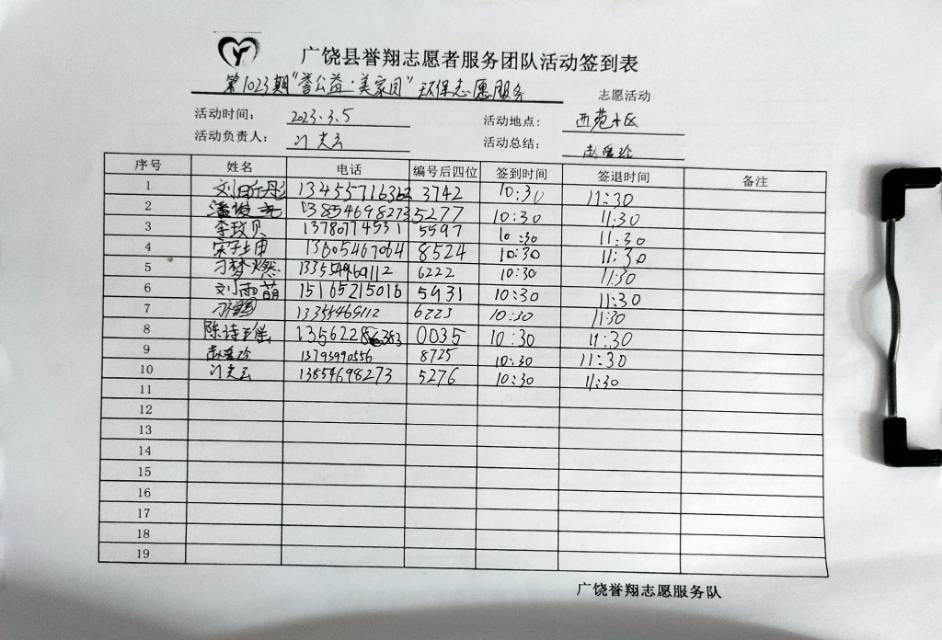 广饶县誉翔志愿者服务团队活动签到表
第1023期"誉公益·美家园"环保志愿服务 志愿活动
活动时间: 2023.3.5 活动地点: 西苑小区
活动负责人: 活动总结:
序号 姓名 电话 编号后四位 签到时间 签退时间 备注
1 13455716362 3742 10:30 11:30
2 潘俊 13854698273 5277 10:30 11:30
3 李玟贝 13780774531 5597 10:30 11:30
4 13605467064 8524 10:30 11:30
5 梦燃 13355469112 6222 10:30 11:30
6 刘雨萌 15165215016 5931 10:30 11:30
7 13355469112 6223 10:30 11:30
8 陈诗 0035 10:30 11:30
9 13793990556 8725 10:30 11:30
10 13854698273 5276 10:30 11:30
11
12
13
14
15
16
17
18
19
广饶誉翔志愿服务队